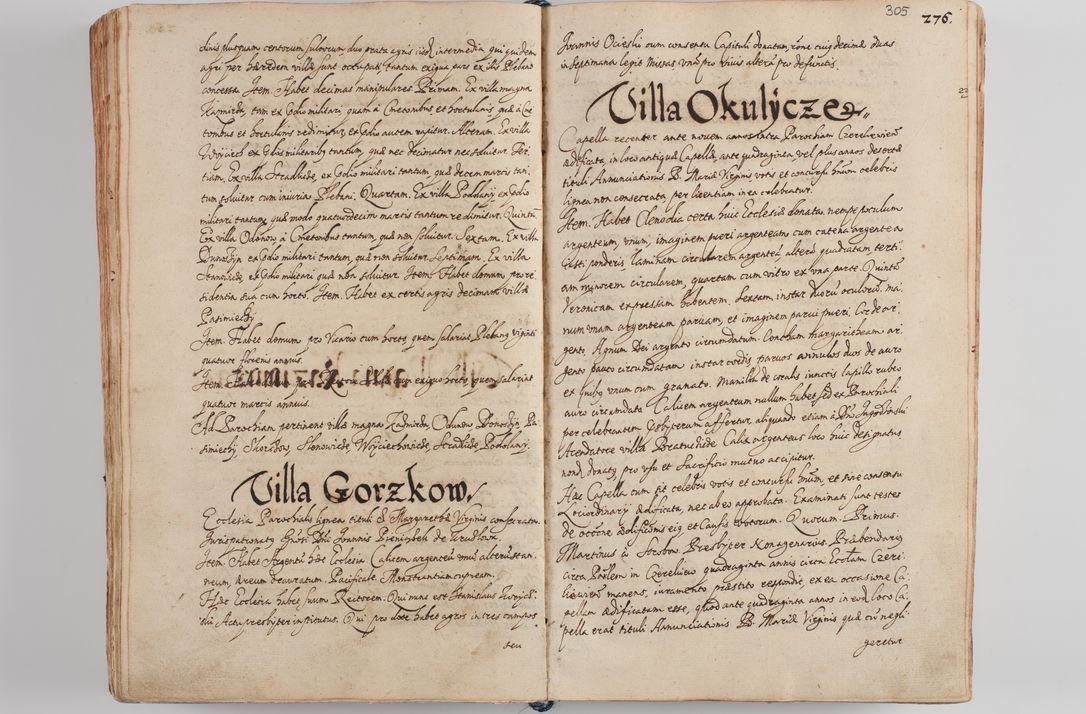 dinis plusquam centorum sulcorum duo prata agris iisdem intermedia, qui quidem
agri per hæredem villæ sunt occupati, tantum exigua pars ex illis Plebano
concessa. Item. Habet decimas manipulares. Primam. Ex villa magna
Kazmirza, tam ex Prædio militari, quam à Cmetonibus et hortulanis, quæ à Cme
tonibus et hortulanis redimitur, ex Prædio autem rapitur. Alteram. Ex villa
Woyciech ex Prædiis militaribus tantum, quæ nec decimatur nec soluitur. Ter
tiam. Ex villa Stradlice, ex Prædio militari tantum, quæ decem marcis tan
tum soluitur cum iniuria Plebani. Quartam. Ex villa Podolany ex Prædio
militari tantum, quæ modo quatuordecim marcis tantum redimitur. Quintam
Ex villa Odonow à Cmetonibus tantum, quæ non soluitur. Sextam. Ex villa
Donoszyn ex Prædio militari tantum, quæ non soluitur. Septimam. Ex villa
ex Prædio militari quæ non soluitur. Item. Habet domum pro re
sidentia sua cum horto. Item. Habet ex certis agris decimam villæ
Pasimiechy
Item. Habet domum pro Vicario cum horto quem salariat Plebanus viginti
quatuor florenis annuis.
Item. cum exiguo horto quem salariat
quatuor marcis annuis.
Ad Parochiam pertinent villæ magna Kazmirza, Odonow, Donoszyn, Pa
simiechy, Skorzow, Slonowice, Woyciechowice, Stradlice, Podolany.
Villa Gorzkow.
Ecclesia Parochialis lignea tituli S. Margarethæ Virginis consecrata.
Iurispatronatus Gnosi Dni Joannis Pieniążek de Kruzlowa.
Item. Habet Argentum hæc Ecclesia. Calicem argenteum unum, alterum stan
neum, æreum deauratum. Pacificale. Monstrantiam cupream.
Hæc Ecclesia habet suum Rectorem. Qui nunc est Stanislaus
Actu presbyter institutus. Qui pro dote habet agros in tres campos
seu
305 276.
Joannis Ocieski cum consensu Capituli donatam, rone cuius decimæ duas
in septimana legit Missas unam pro viuis alteram pro defunctis.
Villa Okulycze
Capella recenter ante nouem annos intra Parochiam Czereliewien
ædificata, in loco antiquæ Capellæ ante quadraginta vel plus annos desertæ
tituli Annunciationis B. Mariæ Virginis votis et concursu hominum celebris
lignea non consecrata, per licentiam in ea celebratur.
Item. Habet Clenodia certa huic Ecclesiæ donata, nempe poculum
argenteum, unum, imaginem pueri argenteam cum catena argentea
iusti ponderis, laminam circularem argenteam, alteram quadratam, terti
am minorem circularem, quartam cum vitro ex una parte. Quintam
Veronicam expressam habentem. Sextam instar duorum oculorum. ma
num unam argenteam paruam, et imaginem parui pueri. Cor de ar
gento. Agnum Dei argento circumdatum. Concham margaritheam ar
gento pauco circumdatam instar cordis, paruos annulos duos de auro
ex quibus unum cum granato. Manilia de coralis iunctis lapillo rubeo
auro circumdato. Calicem argenteum nullum habet sed ex Parochiali
per celebrantem Presbyterum affertur, aliquando etiam à Dno
Arendatore villæ Bratucice. Calix argenteus loco huic designatus
nondum donatus, pro usu et Sacrificio mutuo accipitur.
Hæc Capella cum sit celebris votis et concursu hominum, et sine consensu
Loci ordinarij ædificata, nec ab eo approbata. Examinati sunt testes
de occone ædificationis eius et causis votorum. Quorum. Primus.
Martinus à Strobow. Presbyter Nonagenarius, Præbendarius
circa Parochialem in Czereliewo quadraginta annis circa Ecclam Czere
liewien manens, iuramento præstito respondit ex ea occasione Ca
pellam ædificatam esse, quod ante quadraginta annos in eodem loco Ca
pella erat tituli Annunciationis B. Mariæ Virginis, quæ cum negli
geretur